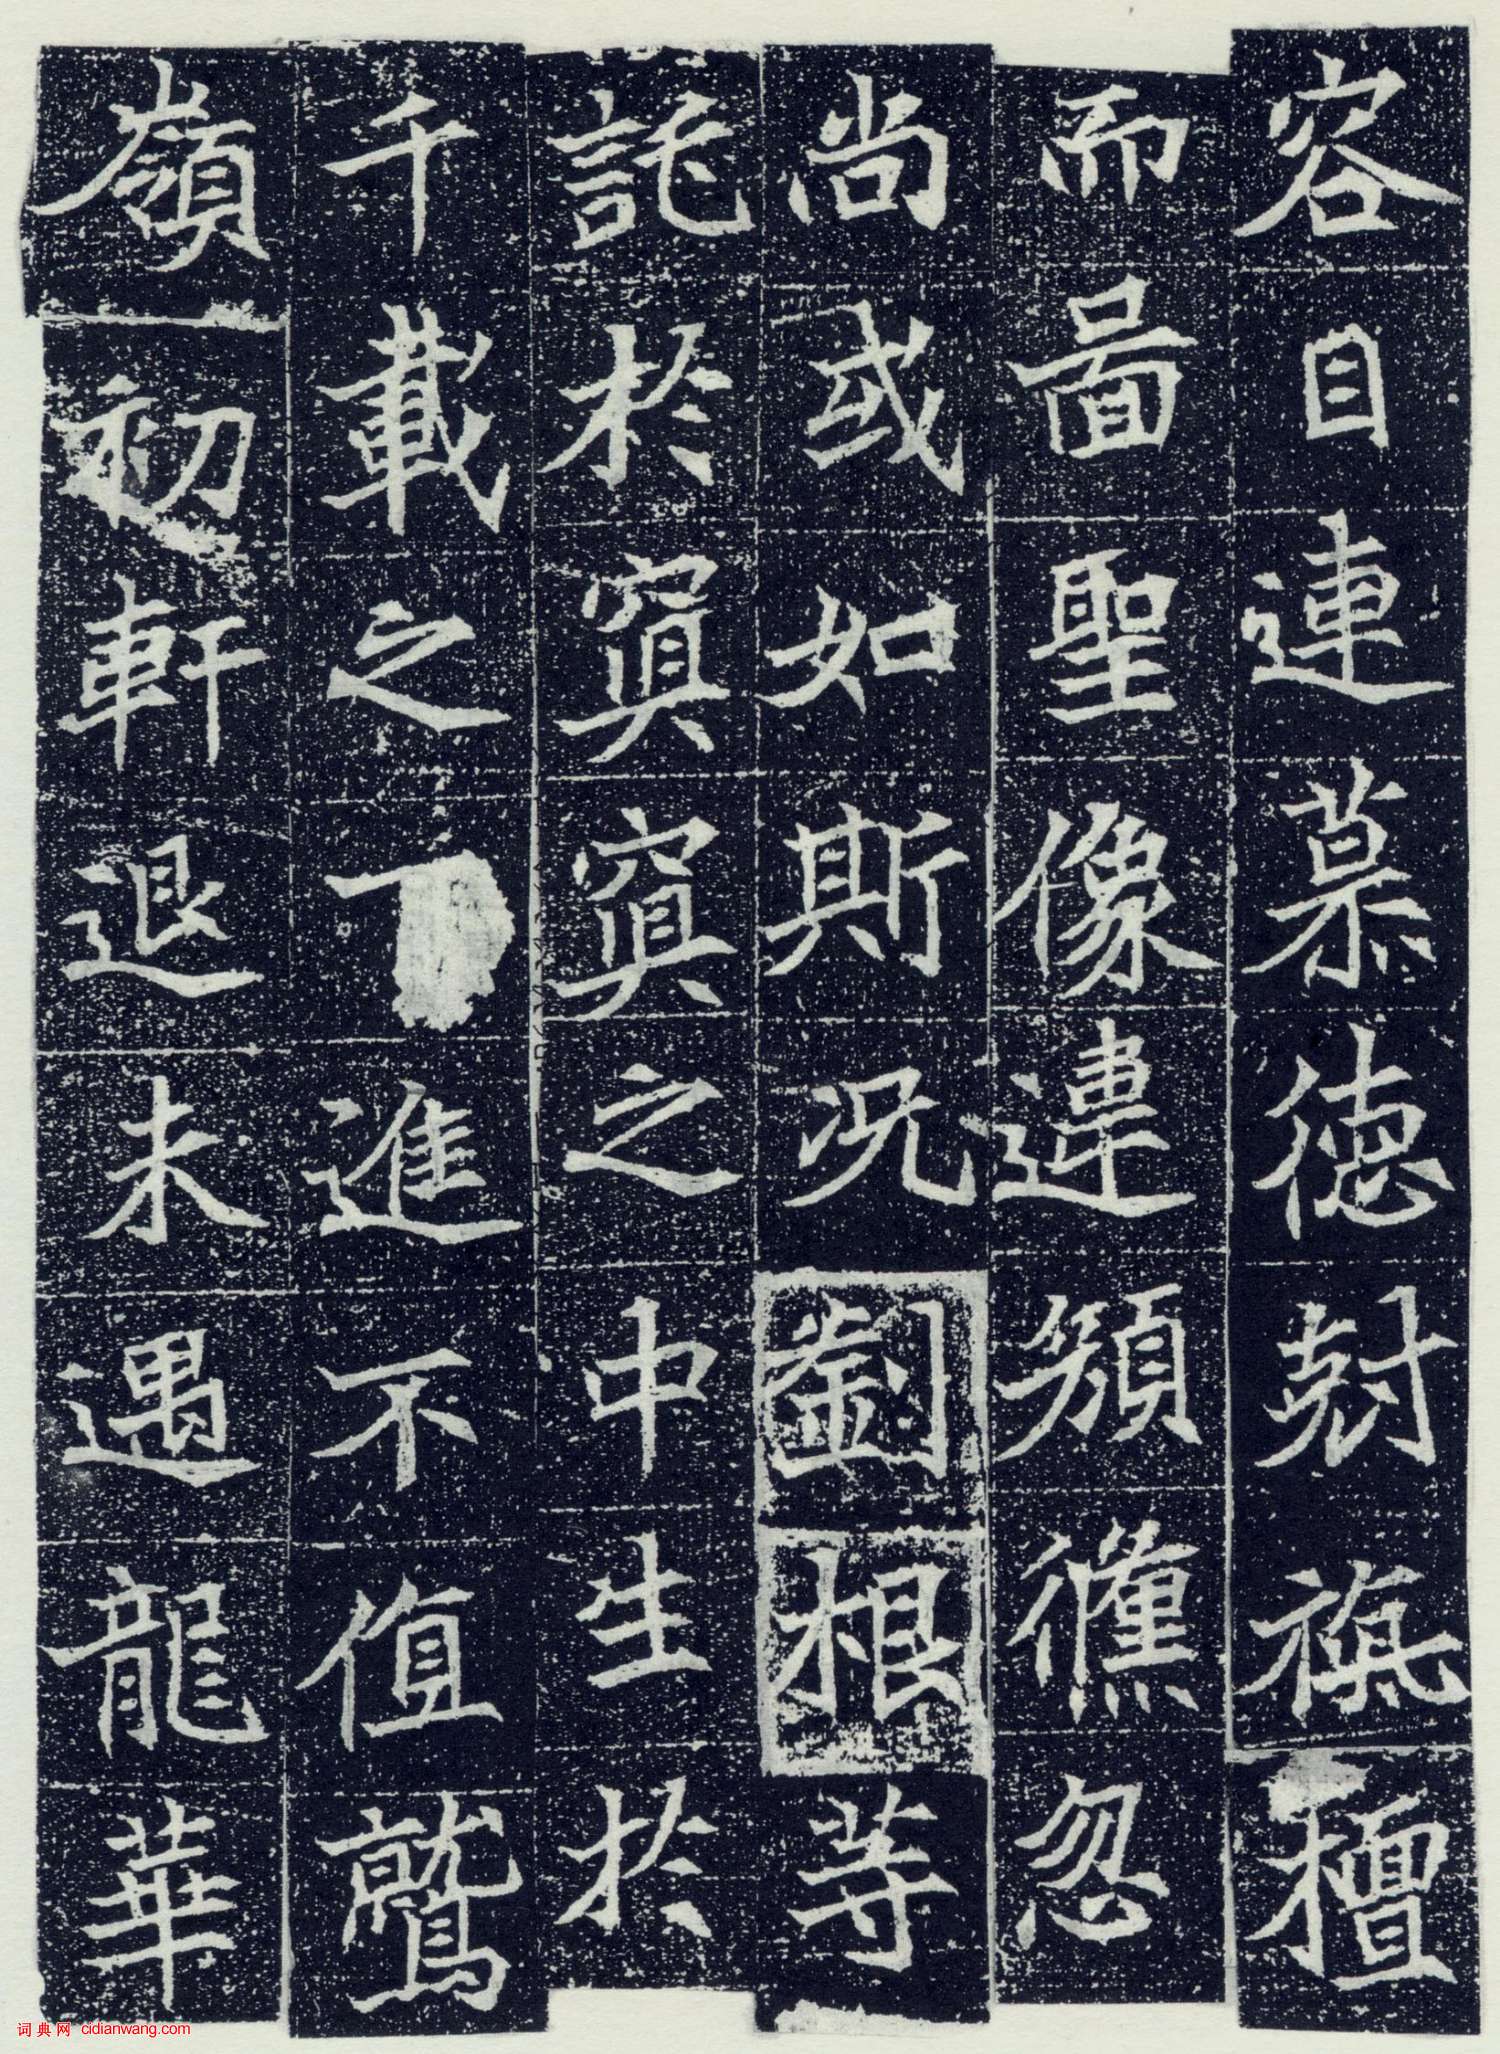 容目連慕德尅旃檀
而啚聖像違顏儵忽
尚或如斯況劉根等
託於冥冥之中生於
千載之下進不值鷲
嶺初軒退未遇龍華
词典网 cidianwang.com